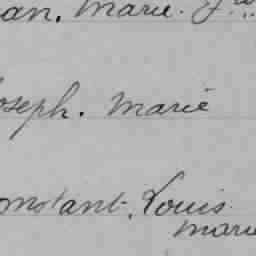 an. Marie.
oseph. Marie
onstant. Louis
marie